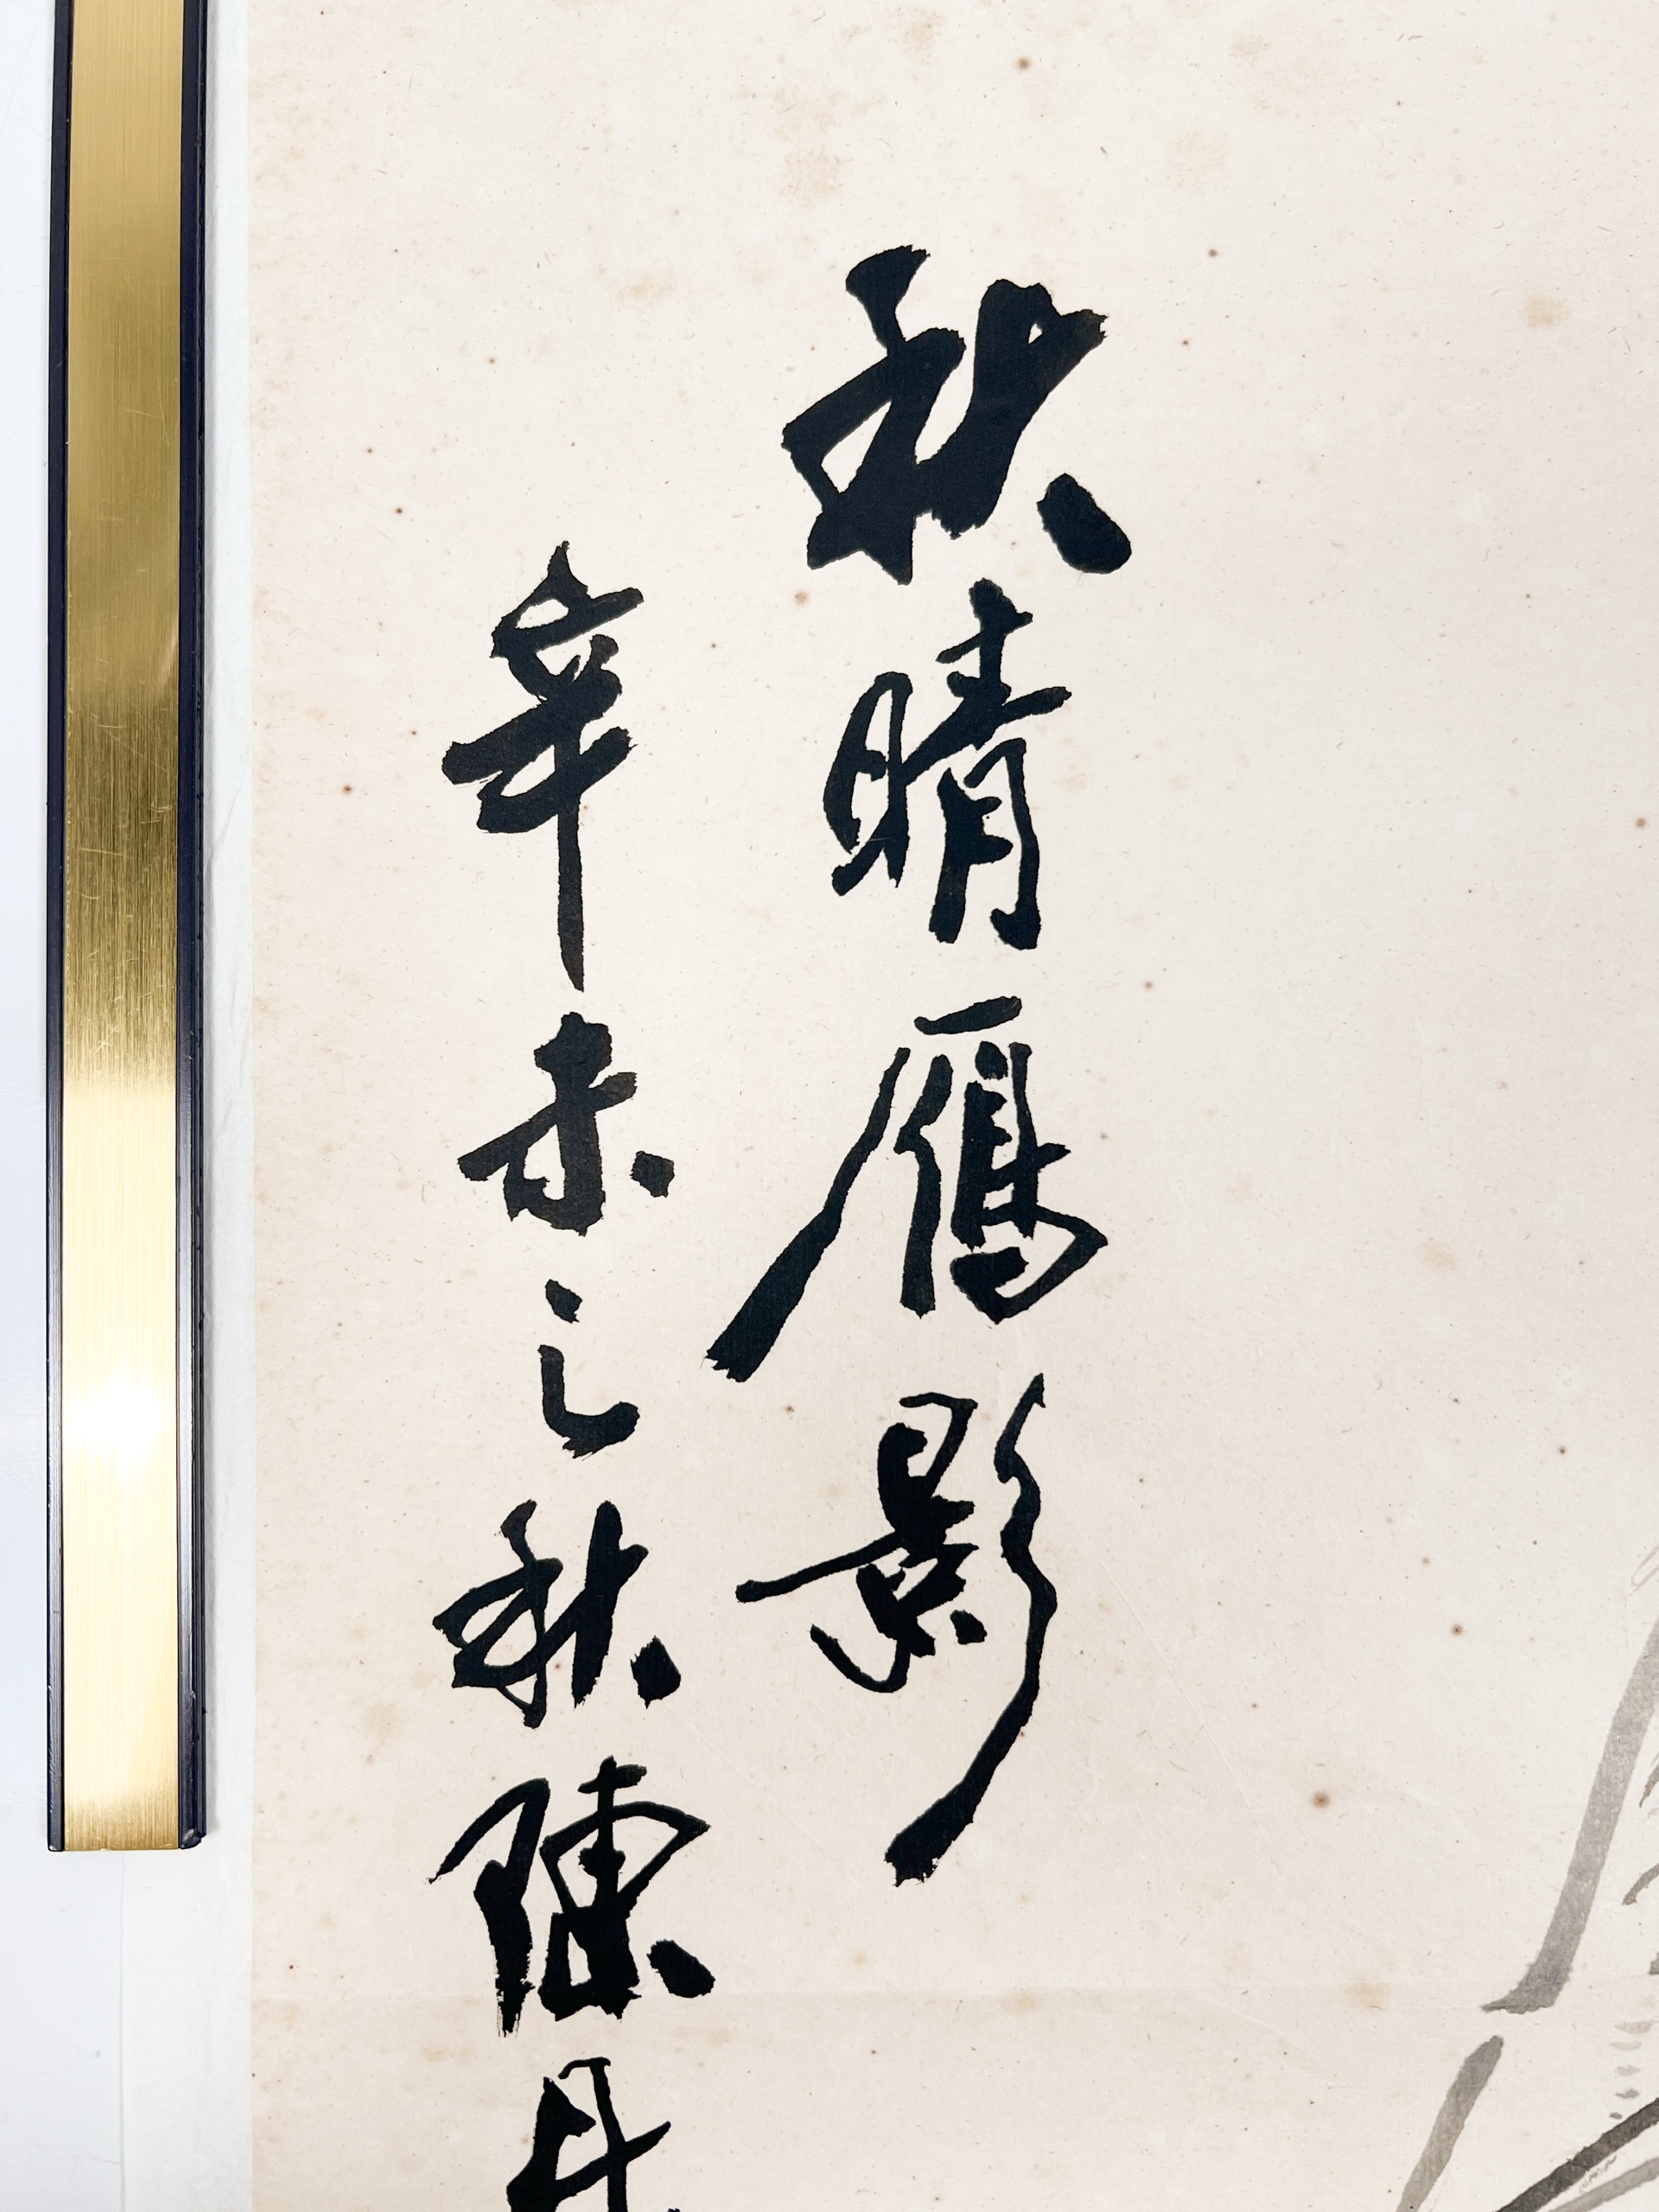 秋晴雁影
辛未之秋陳